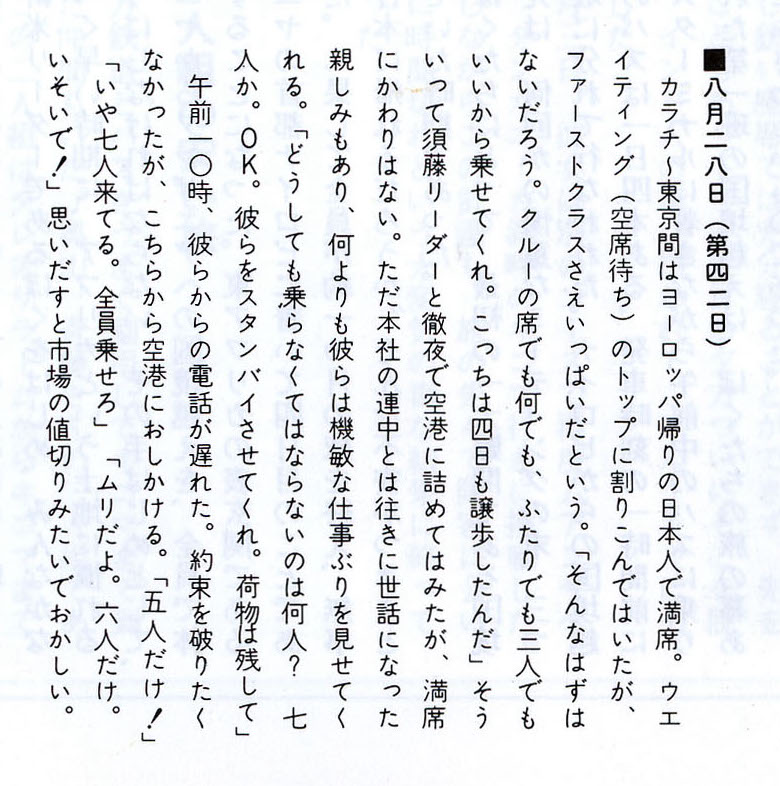 ■八月二八日（第四二日）
カラチ～東京間はヨーロッパ帰りの日本人で満席。ウエ
イティング（空席待ち）のトップに割りこんではいたが、
ファーストクラスさえいっぱいだという。「そんなはずは
ないだろう。クルーの席でも何でも、ふたりでも三人でも
いいから乗せてくれ。こっちは四日も譲歩したんだ」そう
いって須藤リーダーと徹夜で空港に詰めてはみたが、満席
にかわりはない。ただ本社の連中とは往きに世話になった
親しみもあり、何よりも彼らは機敏な仕事ぶりを見せてく
れる。「どうしても乗らなくてはならないのは何人？　七
人か。OK。彼らをスタンバイさせてくれ。荷物は残して」
午前一〇時、彼らからの電話が遅れた。約束を破りたく
なかったが、こちらから空港におしかける。「五人だけ！」
「いや七人来てる。全員乗せろ」「ムリだよ。六人だけ。
いそいで！」思いだすと市場の値切りみたいでおかしい。